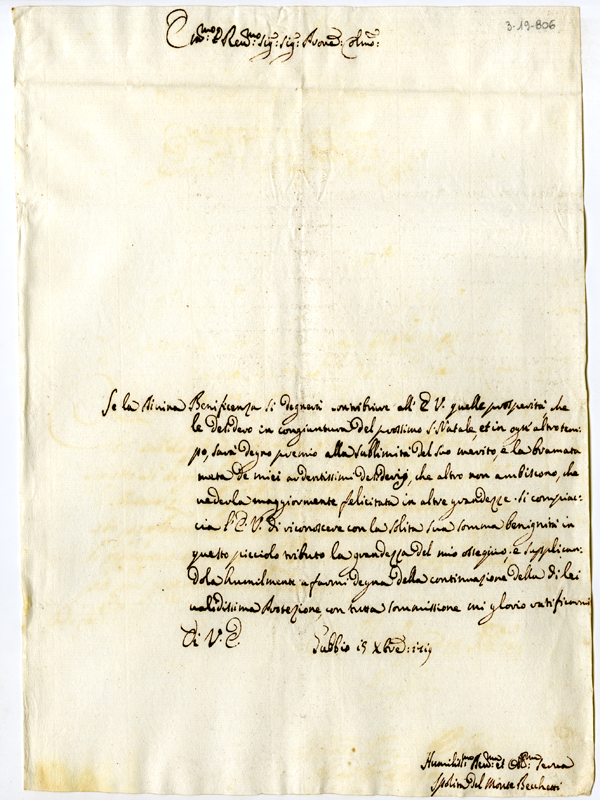 3-19-806
Em.mo e Rev.mo Sig.r Sig.r Prone Colmo:
Se la Divina Beneficenza si degnerà contribuire all' E.V. quelle prosperità, che
le desidero in congiuntura del prossimo S. Natale, et in ogn'altro tem-
po, sarà degno premio alla sublimità del suo merito, e la bramata
meta de miei ardentissimi desiderij, che altro non ambiscono, che
vederla maggiormente felicitata in altre grandezze. Si compiac-
cia l'E.V. di riconoscere con la solita sua somma benignità in
questo picciolo tributo la grandezza del mio ossequio, e supplican-
dola humilmente a farmi degna della continuazione della di lei
validissima Protezione, con tutta sommissione mi glorio ratificarmi
Di V.E.
Gubbio 15 Xbre: 1719
Humiliss.mo Dev.ma et Obb.ma Serva
del Monte Becchetti